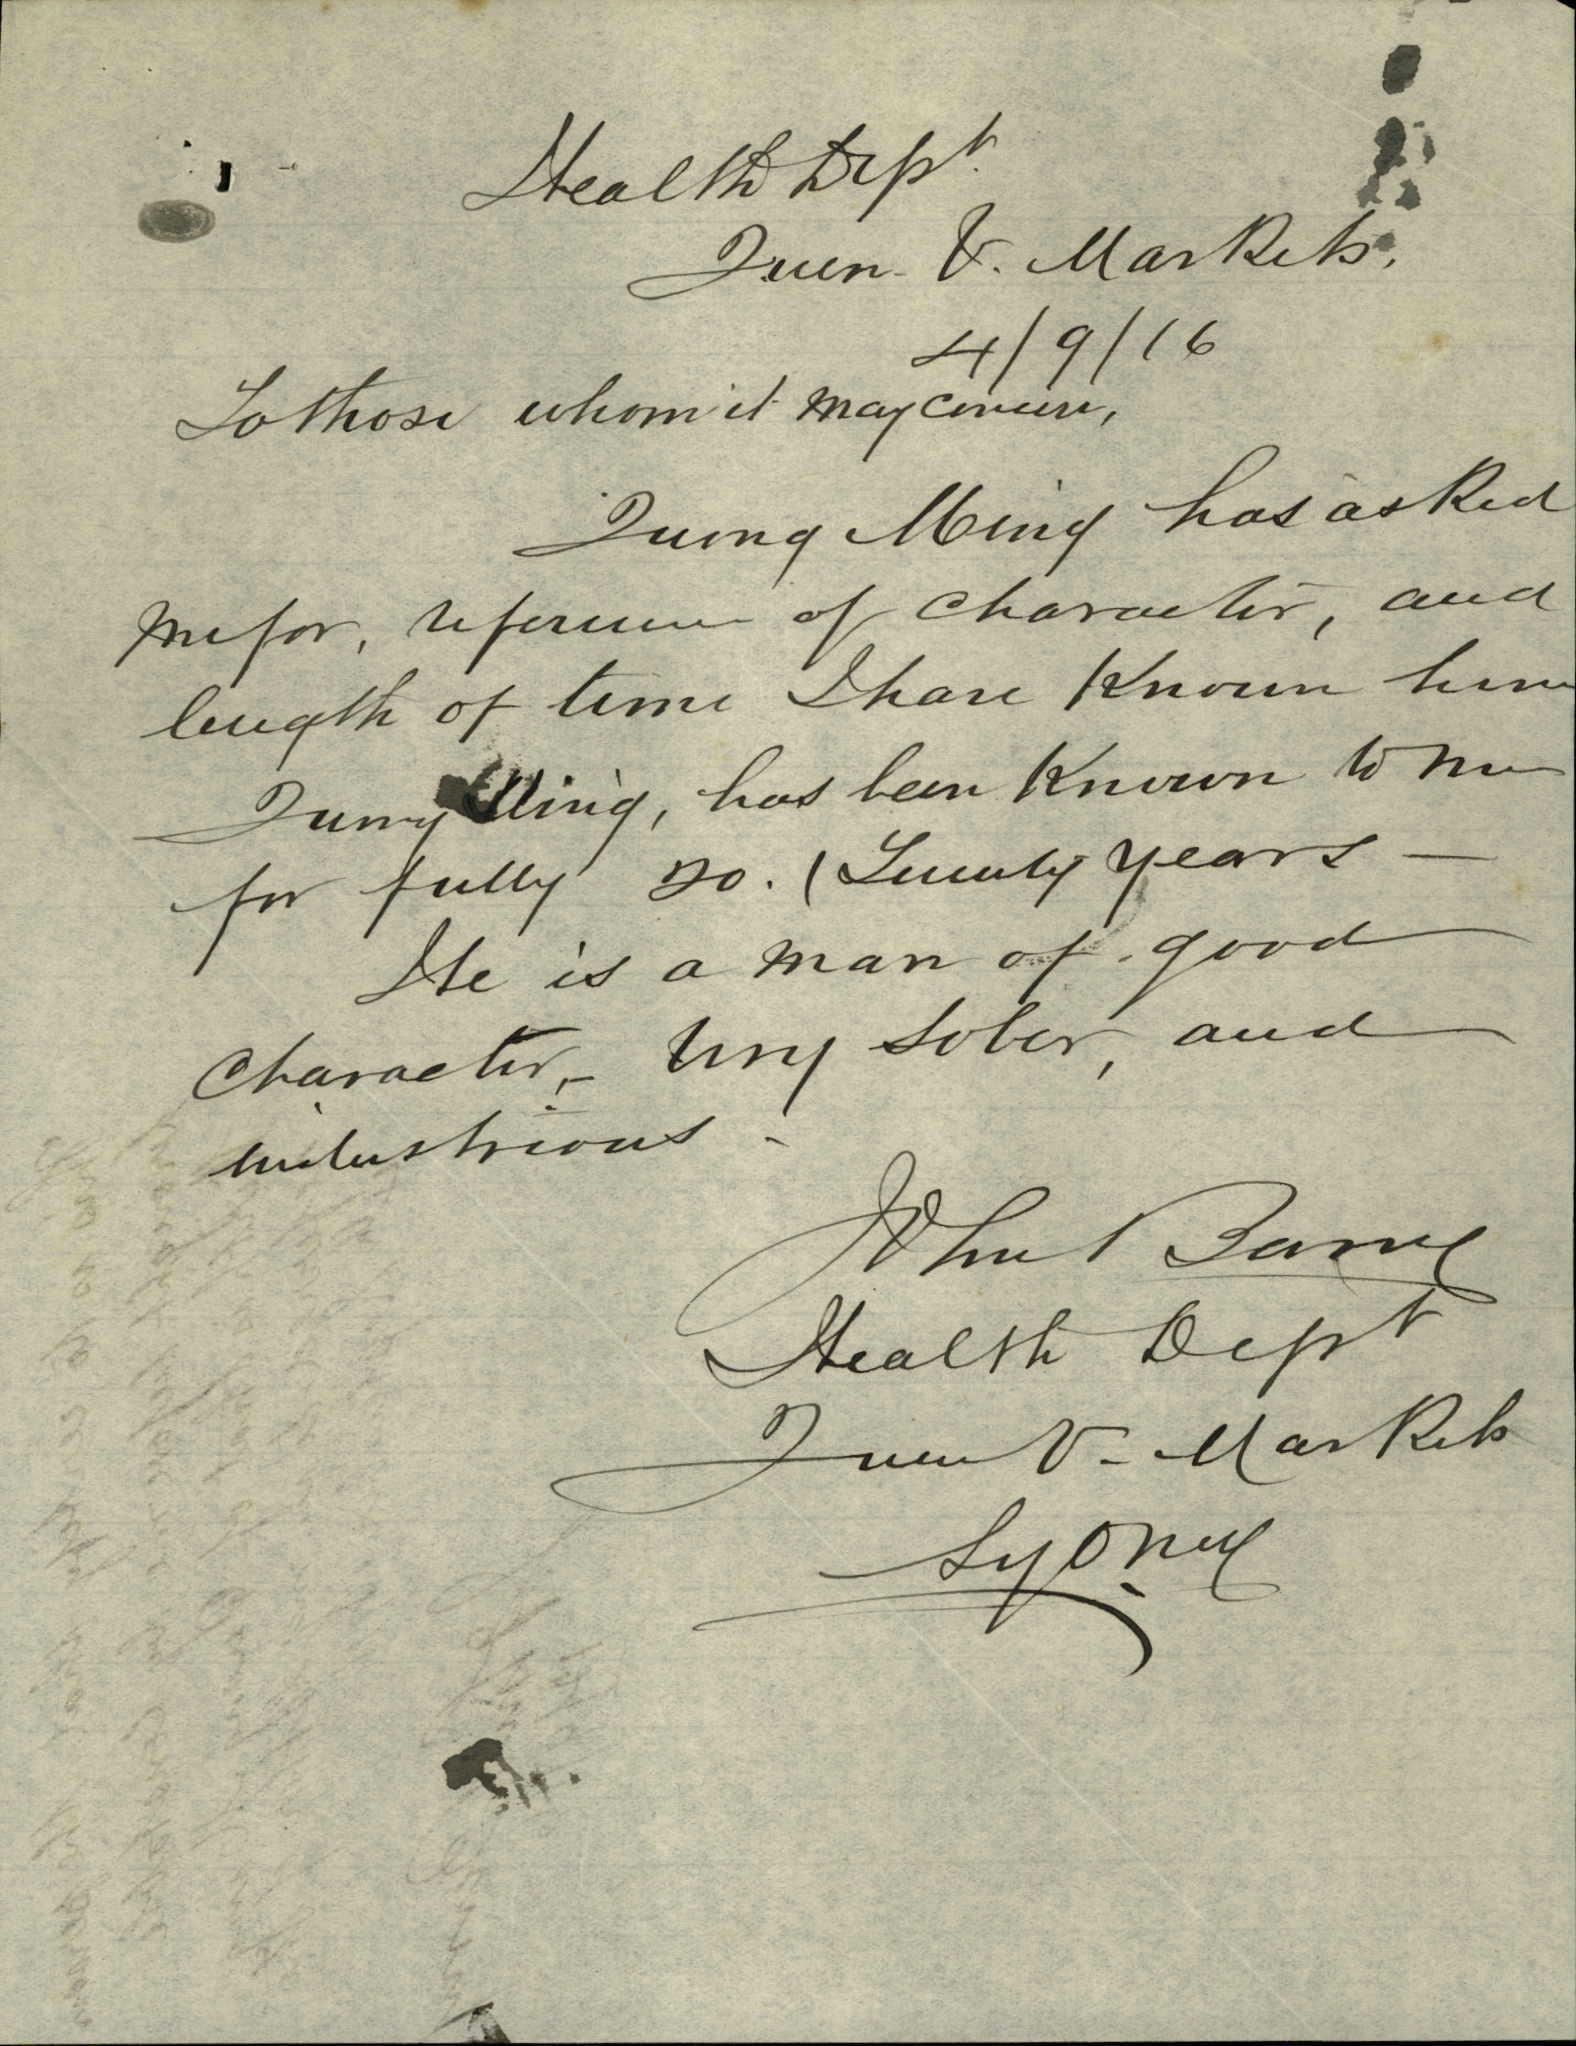 Health Dept.
Queen V. Markets.
4/9/16
To those whom it may concern,
Quong Ming has asked
me for, reference of character, and
length of time I have known him
Quong Ming, has been known to me
for fully 20. (Twenty years —
He is a man of good
character, - very sober, and
industrious -
John Barry
Health Dept
Queen V- Markets
Sydney